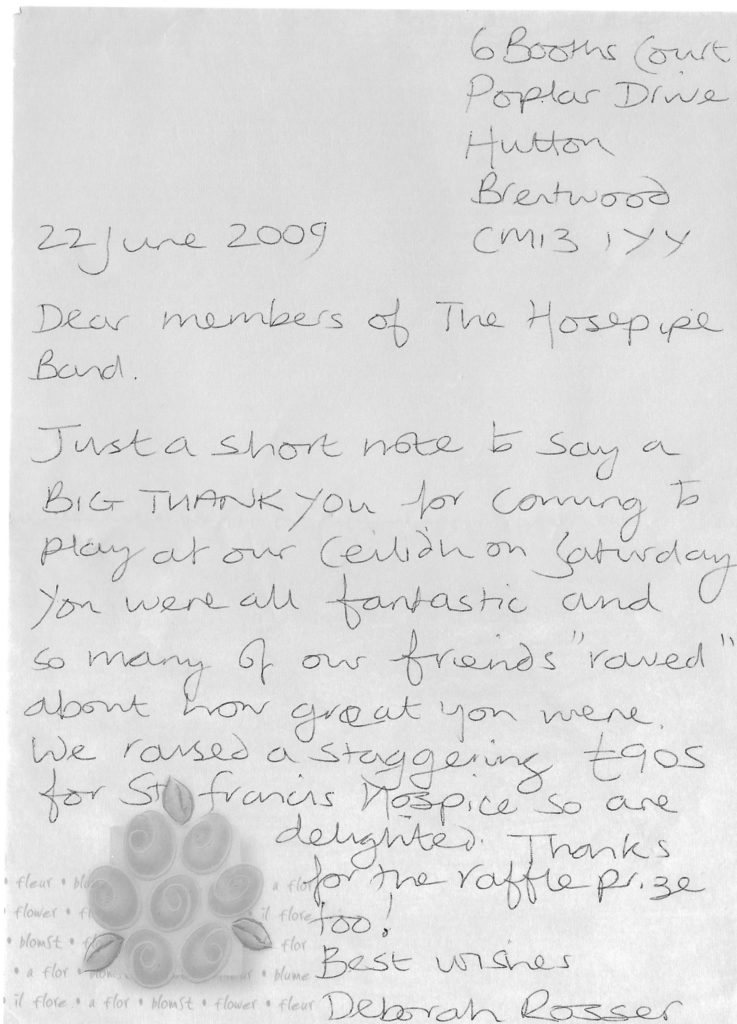 6 Booths Court
Poplar Drive
Hutton
Brentwood
22 June 2009
CM13 1YY
Dear members of The Hosepipe
Band.
Just a short note to say a
BIG THANK YOU for coming to
play at our Ceilidh on Saturday
You were all fantastic and
so many of our friends "raved"
about how great you were.
We raised a staggering £905
for St Francis Hospice so are
delighted. Thanks
for the raffle prize
too!
Best wishes
Deborah Rosser
• fleur • a flor
• flower • il flore
• blomst • flor
• a flor • • blume
• il flore • a flor • blomst • flower • fleur